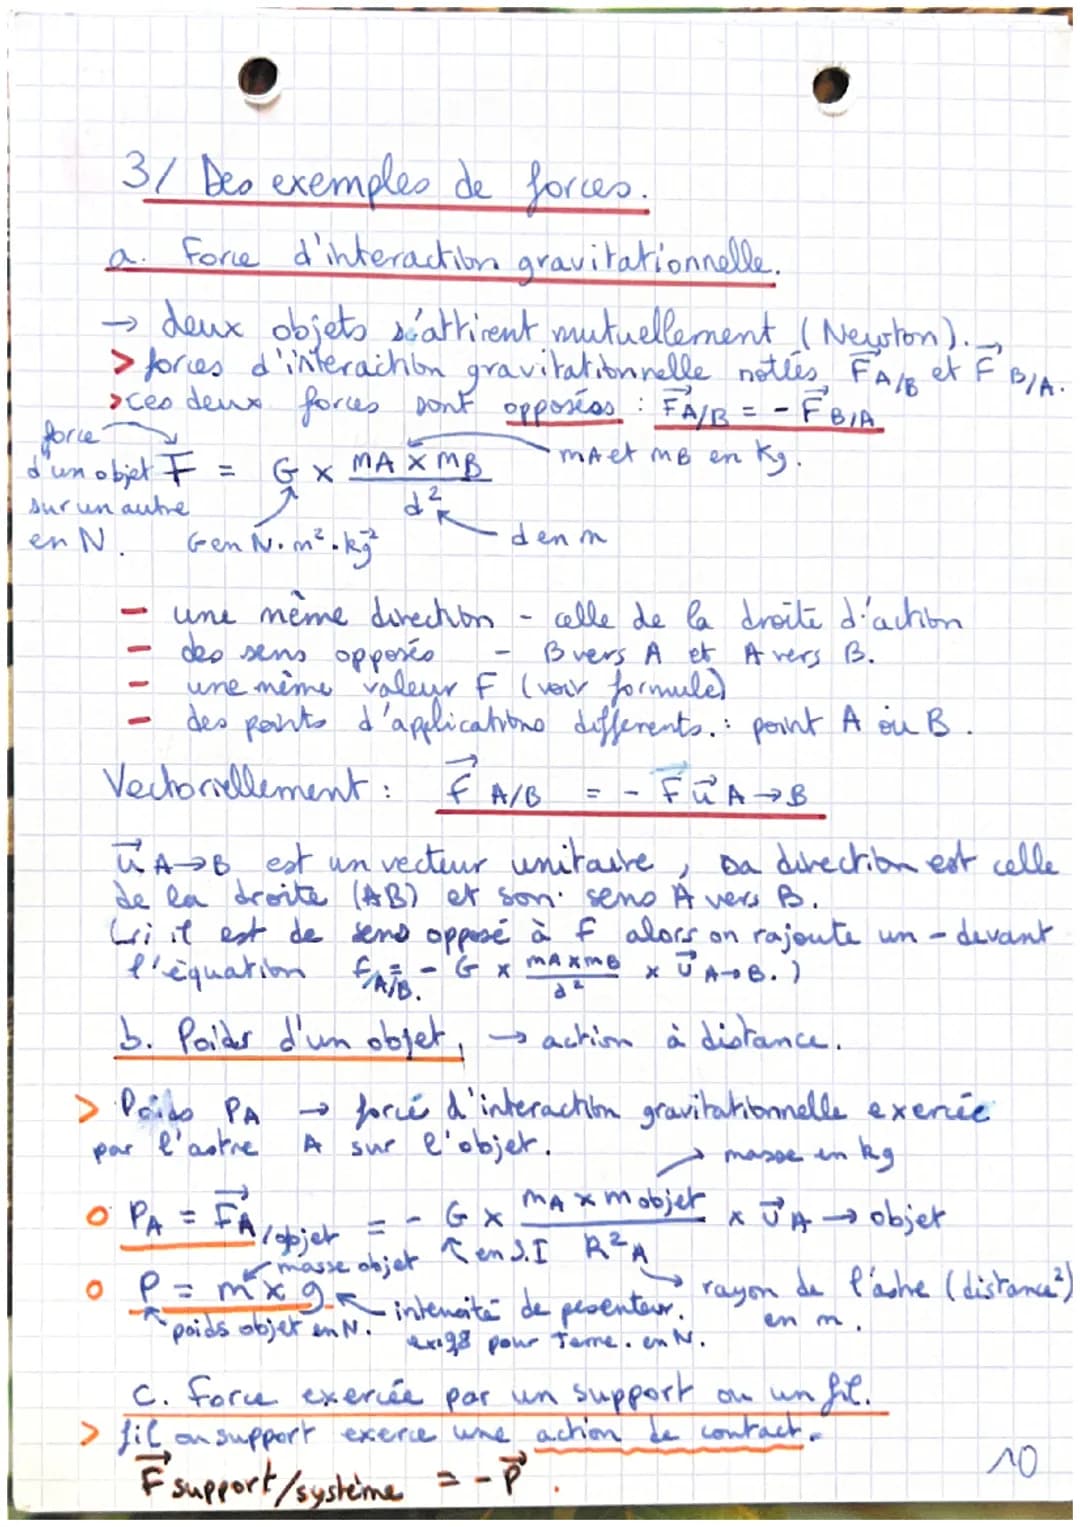 3/ Des exemples de forces.
a. Force d'interaction gravitationnelle.
→ deux objets s'attirent mutuellement (Newton).
> forces d'interaction gravitationnelle notées F⃗ A/B et F⃗ B/A.
> ces deux forces sont opposées : F⃗ A/B = - F⃗ B/A
force d'un objet sur un autre en N.
F = G × (mA × mB) / d²
mA et mB en kg.
G en N.m².kg⁻²
d en m
- une même direction - celle de la droite d'action
- des sens opposés - B vers A et A vers B.
- une même valeur F (voir formule)
- des points d'applications différents. : point A ou B.
Vectoriellement : f⃗ A/B = - F u⃗ A→B
u⃗ A→B est un vecteur unitaire, sa direction est celle
de la droite (AB) et son sens A vers B.
(si il est de sens opposé à f alors on rajoute un - devant
l'équation f A/B. = - G × (mA×mB) / d² × u⃗ A→B.)
b. Poids d'un objet, → action à distance.
> Poids PA → force d'interaction gravitationnelle exercée
par l'astre A sur l'objet.
masse en kg
o PA = F⃗A/objet = - G × (mA × m objet) / R²A × u⃗ A → objet
masse objet
en S.I
rayon de l'astre (distance²) en m.
o P = m × g
poids objet en N.
intensité de pesenteur.
ex: 9,8 pour Terre. en N.
c. force exercée par un support ou un fil.
> fil ou support exerce une action de contact.
F⃗ support/système = - P⃗.
10